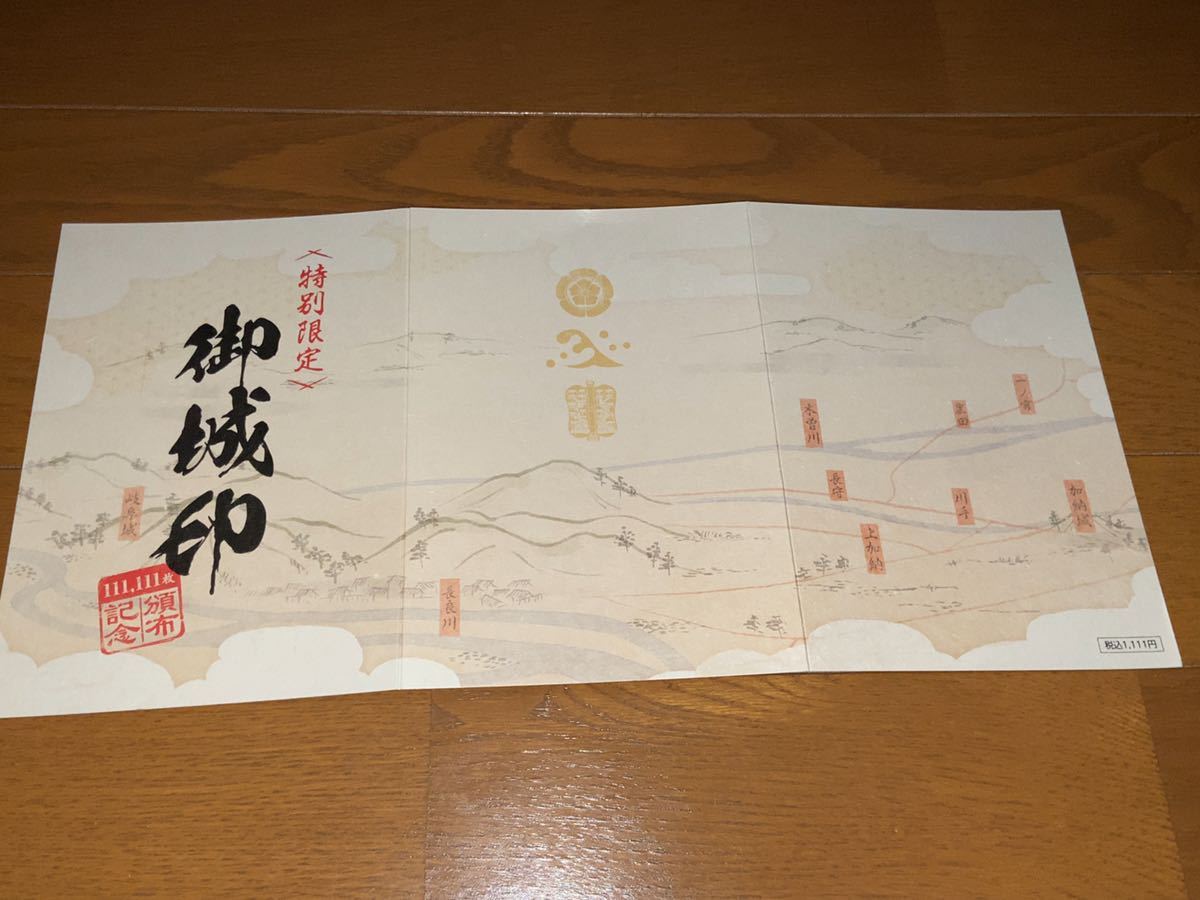 特別限定
御城印
111,111枚
頒布
記念
岐阜城
長良川
木曽川
黒田
一ノ宮
長守
川手
加納城
上加納
税込1,111円